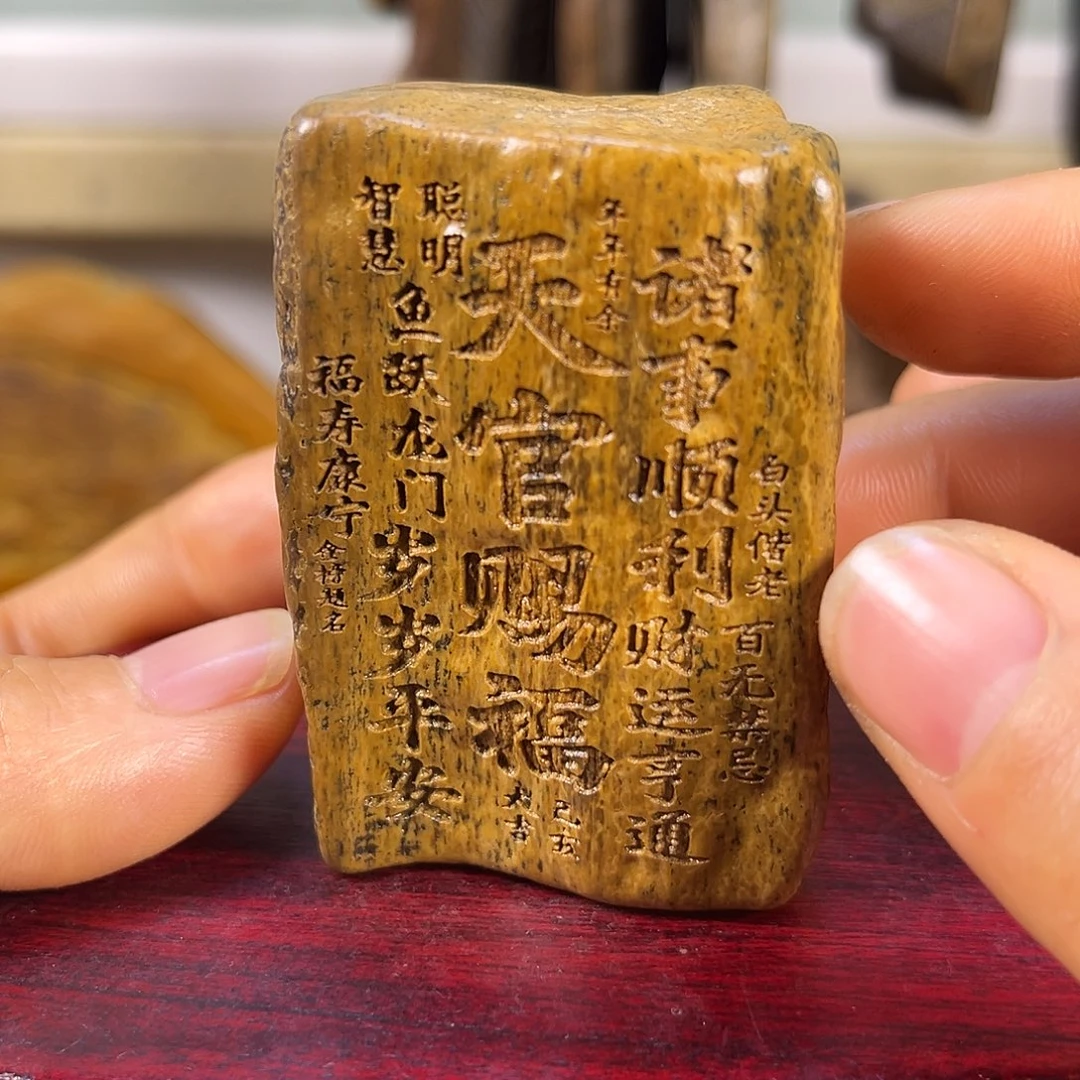 白头偕老
百无禁忌
诸事顺利财运亨通
年年有余
天官赐福
己亥
大吉
聪明
智慧
鱼跃龙门岁岁平安
福寿康宁
金榜题名